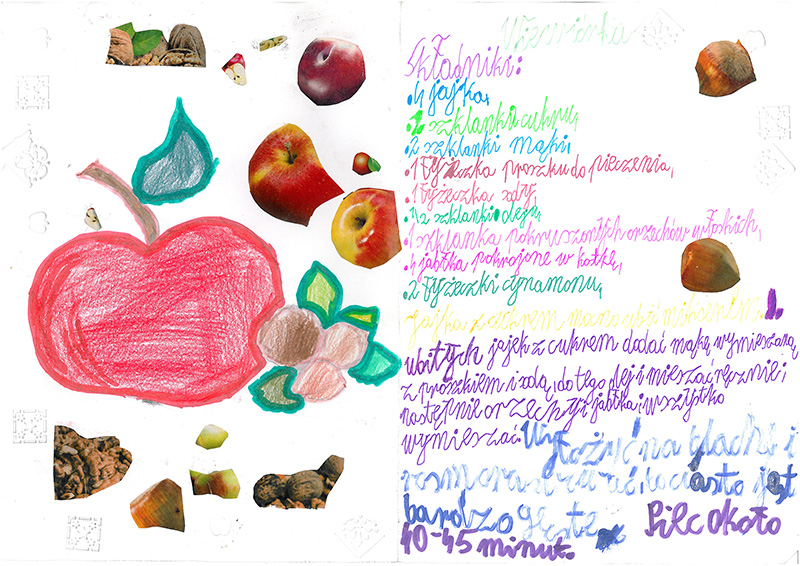 Wiewiórka
Składniki:
• 4 jajka,
• 2 szklanka cukru,
• 2 szklanki mąki,
• 1 łyżeczka proszku do pieczenia,
• 1 łyżeczka sody,
• 1/2 szklanki oleju,
1 szklanka pokruszonych orzechów włoskich,
• 4 jabłka pokrojone w kostkę,
• 2 łyżeczki cynamonu,
Jajka z cukrem mocno ubić mikserem.
ubitych jajek z cukrem dodać mąkę wymieszaną
z proszkiem i sodą, do tego olej i mieszać ręcznie i
następnie orzechy i jabłka i wszystko
wymieszać. Wyłożyć na blachę i
bo ciasto jest
bardzo gęste. Piec około
40-45 minut.